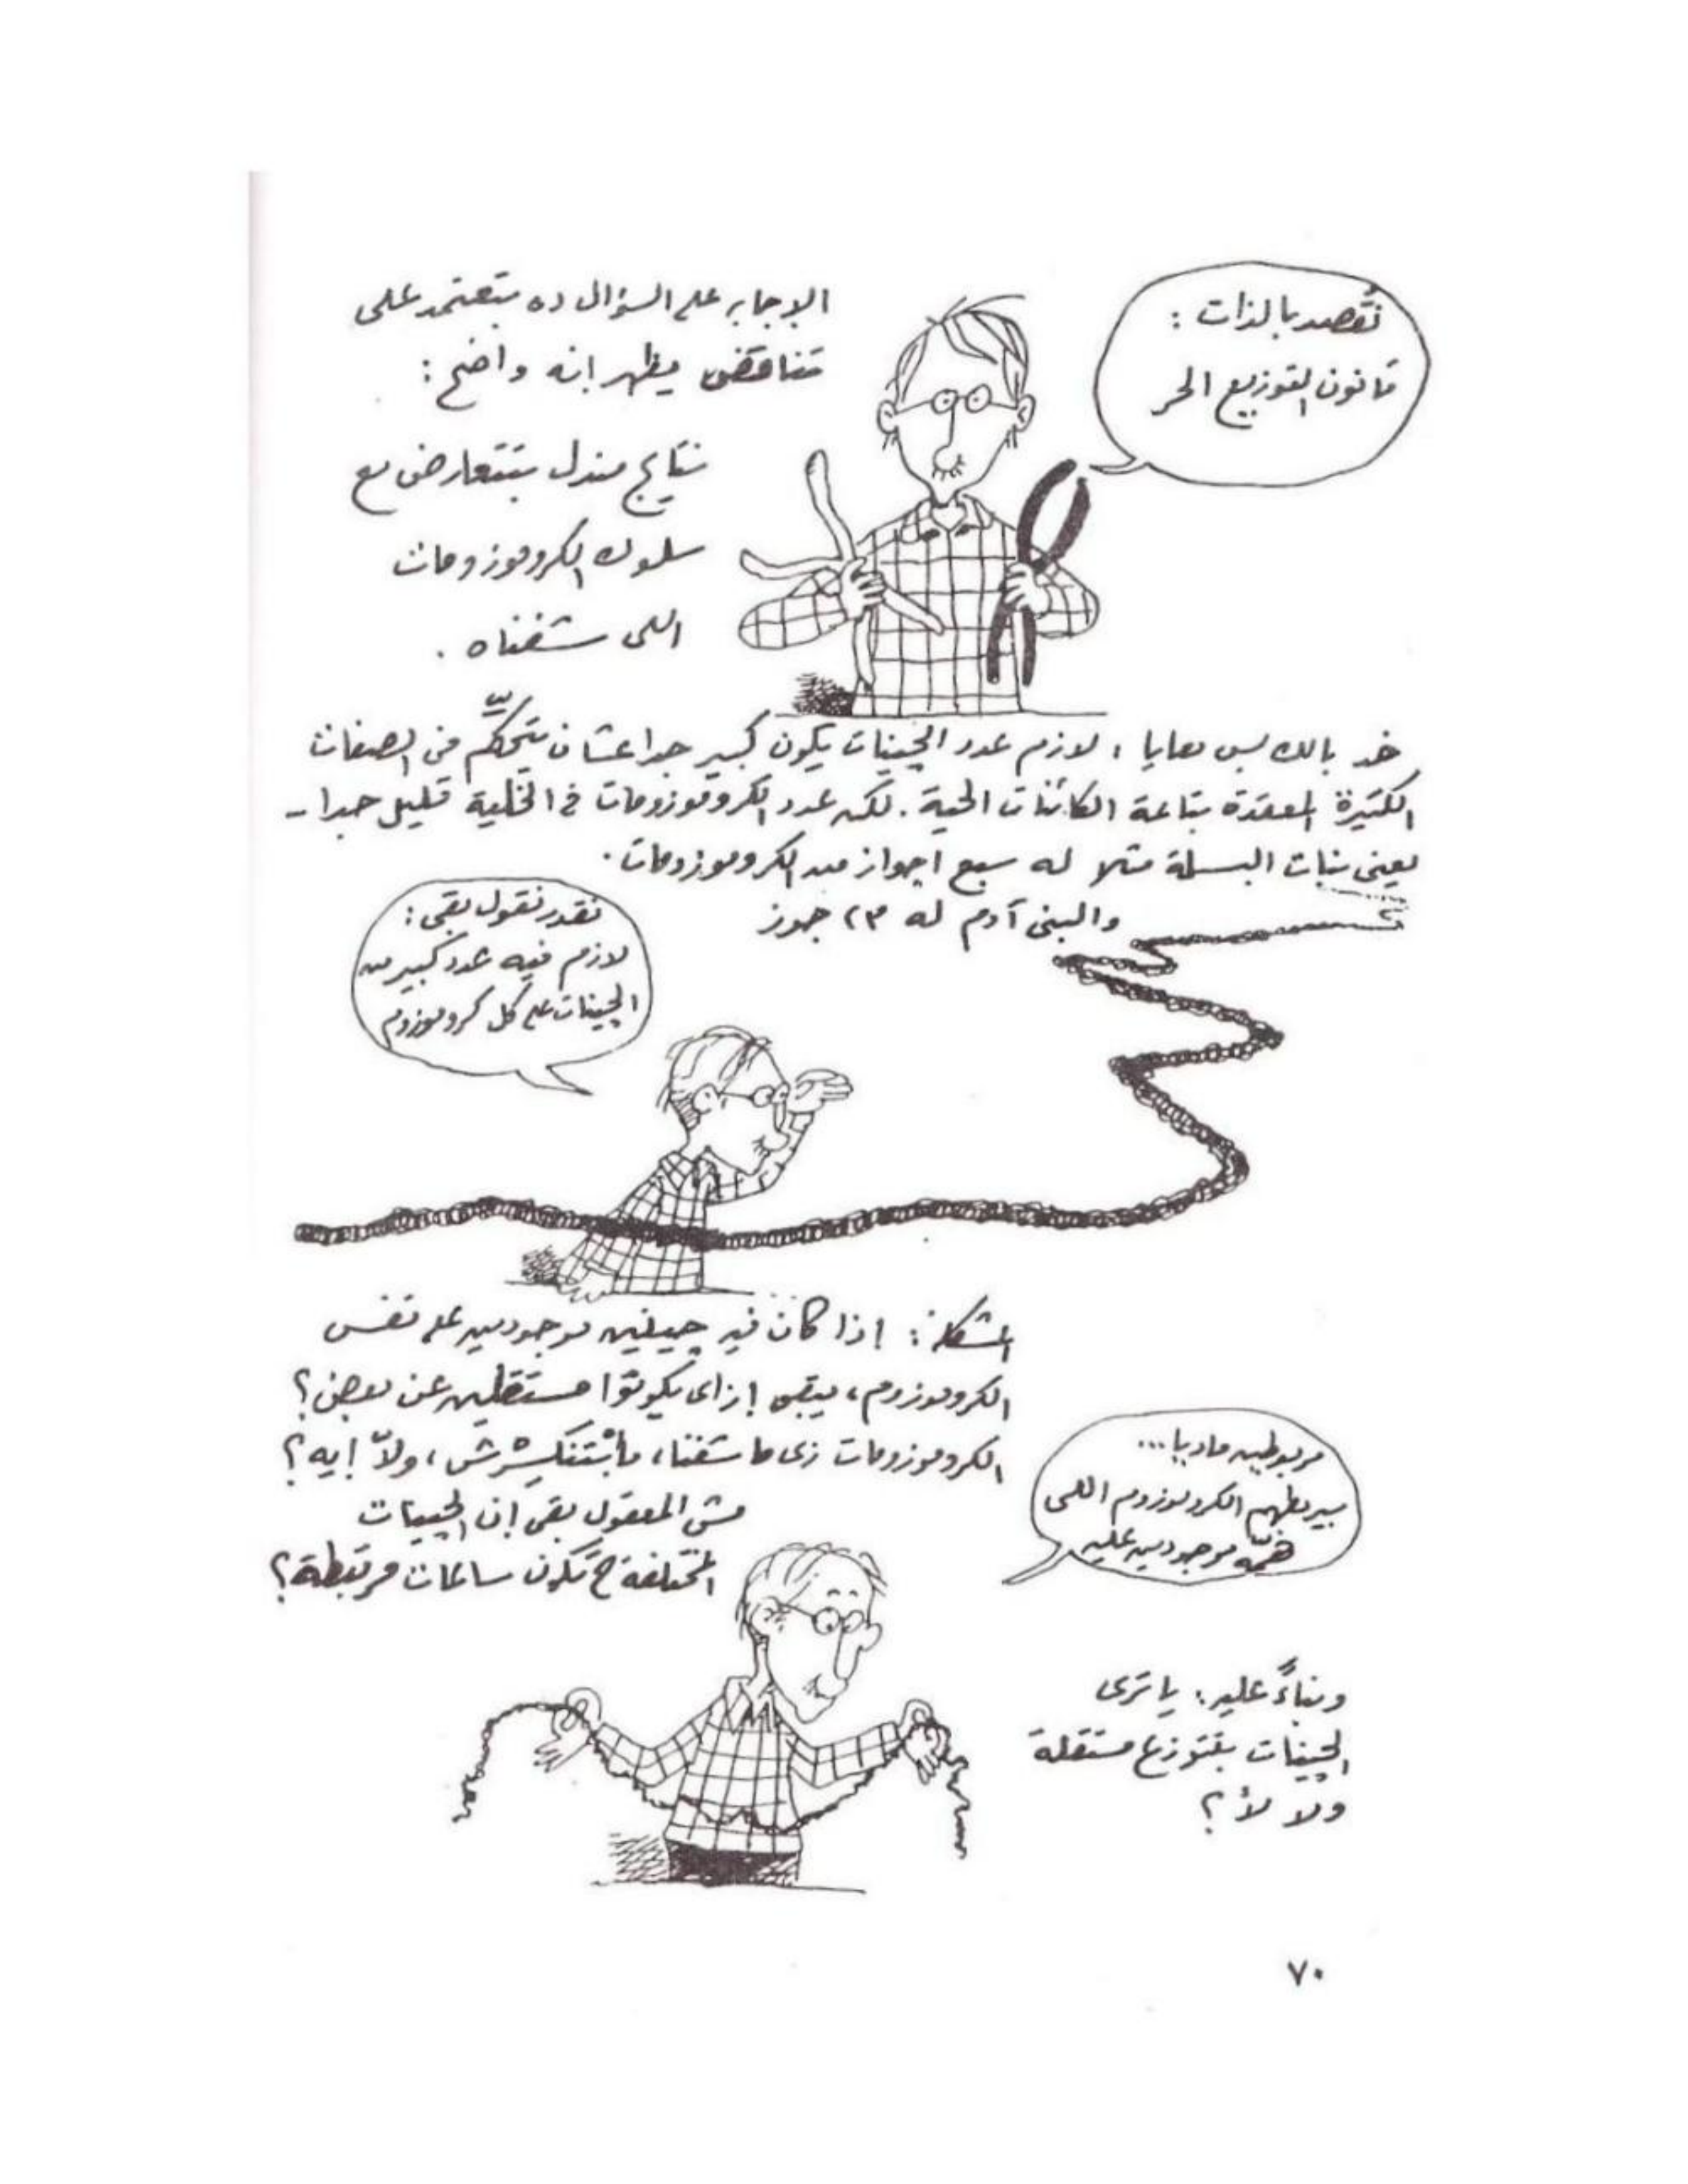 الإجابة على السؤال ده بتعتمد على
تناقض يظهر إنه واضح:
نقصد بالذات:
قانون التوزيع الحر
نتايج مندل بتتعارض مع
سلوك الكروموزومات
اللى شفناه.
خد بالك بس معايا، لازم عدد الچينات يكون كبير جدا عشان يتحكّم فى الصفات
الكتيرة المعقدة بتاعة الكائنات الحية. لكن عدد الكروموزومات فى الخلية قليل جدا ـ
يعنى نبات البسلة مثلا له سبع اجواز من الكروموزومات.
والبنى آدم له ٢٣ جوز
نقدر نقول بقى:
لازم فيه عدد كبير من
الچينات على كل كروموزوم
المشكلة: إذا كان فيه چينين موجودين على نفس
الكروموزوم، يبقى إزاى يكونوا مستقلين عن بعض؟
الكروموزومات زى ما شفنا، مابْتتْكسْرش، ولاّ إيه؟
مش المعقول بقى إن الچينات
المختلفة ح تكون ساعات مرتبطة؟
مربوطين ماديا...
بيربطهم الكروموزوم اللى
همّه موجودين عليه
وبناءً عليه: يا ترى
الچينات بتتوزع مستقلة
ولا لأ؟
٧٠